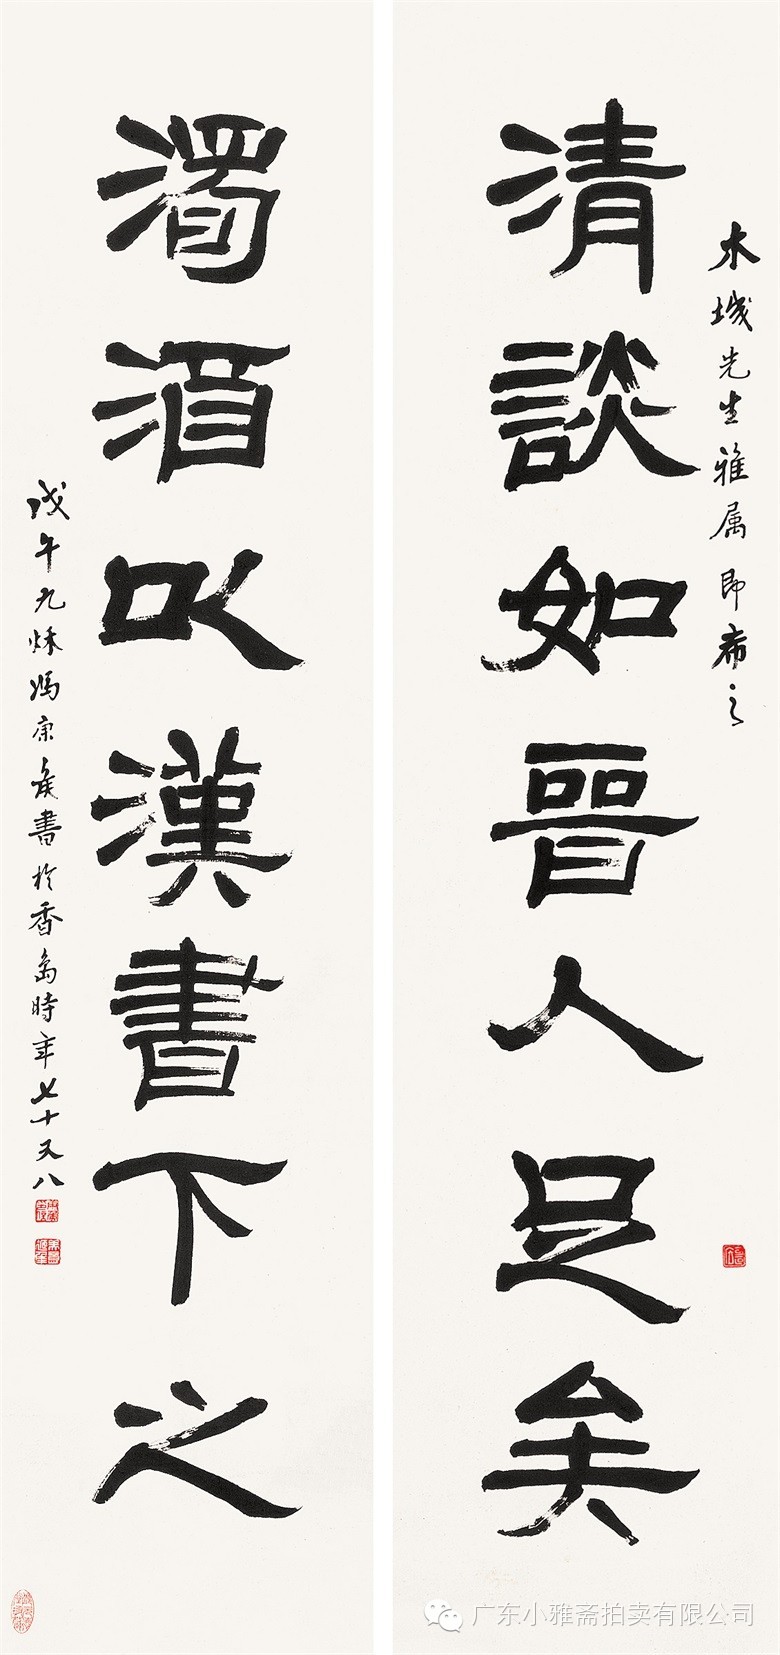 木城先生雅属即希之
清談如晋人足矣
濁酒以漢書下之
戊午九秌馮康矦書於香島時年七十又八
广东小雅斋拍卖有限公司